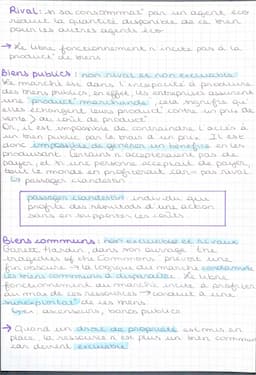 Rival : si sa consommat° par un agent éco
réduit la quantité disponible de ce bien
pour les autres agents éco
→ Le libre fonctionnement n'incite pas à la
product° de biens
Biens publics : non rival et non excluable
Le marché est dans l'incapacité à produire
des biens publics, en effet, les entreprises assurent
une "product° marchande", cela signifie qu'
elles échangent leurs product° contre un prix de
vente > au coût de product°
Or, il est impossible de contraindre l'accès à
un bien public par le biais d'un prix. Il est
donc impossible de générer un bénéfice en les
produisant. Certains n'accepteraient pas de
payer, et si une personne acceptait de payer,
tout le monde en profiterait car pas rival
↳ passager clandestin
passager clandestin : individu qui
profite des résultats d'une action
sans en supporter les coûts
Biens communs : non excluables et rivaux
Garett Hardin, dans son ouvrage the
tragedy of the Commons prévoit une
fin obscure → la logique du marché condamne
les biens communs à disparaître. Le libre
fonctionnement du marché incite à profiter
au max de ces ressources → conduit à une
"surexploitat°" de ces biens.
↳ ex : ascenseurs, bancs publics
→ Quand un droit de propriété est mis en
place, la ressource n'est plus un bien commun
car devient excluable